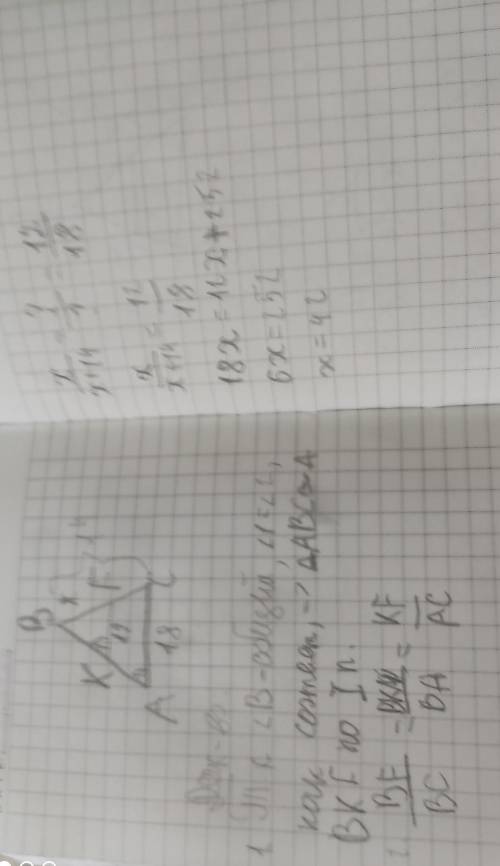 B
x
K
F
14
12
A
18
C
Док-во
1 Т.к ∠B-общий, ∠1=∠2,
как соответ, => △ABC∞△
BKF по I п.
2. BF/BC = BK/BA = KF/AC
x/x+14 = 12/18
x/x+14 = 12/18
18x=12x+252
6x=252
x=42